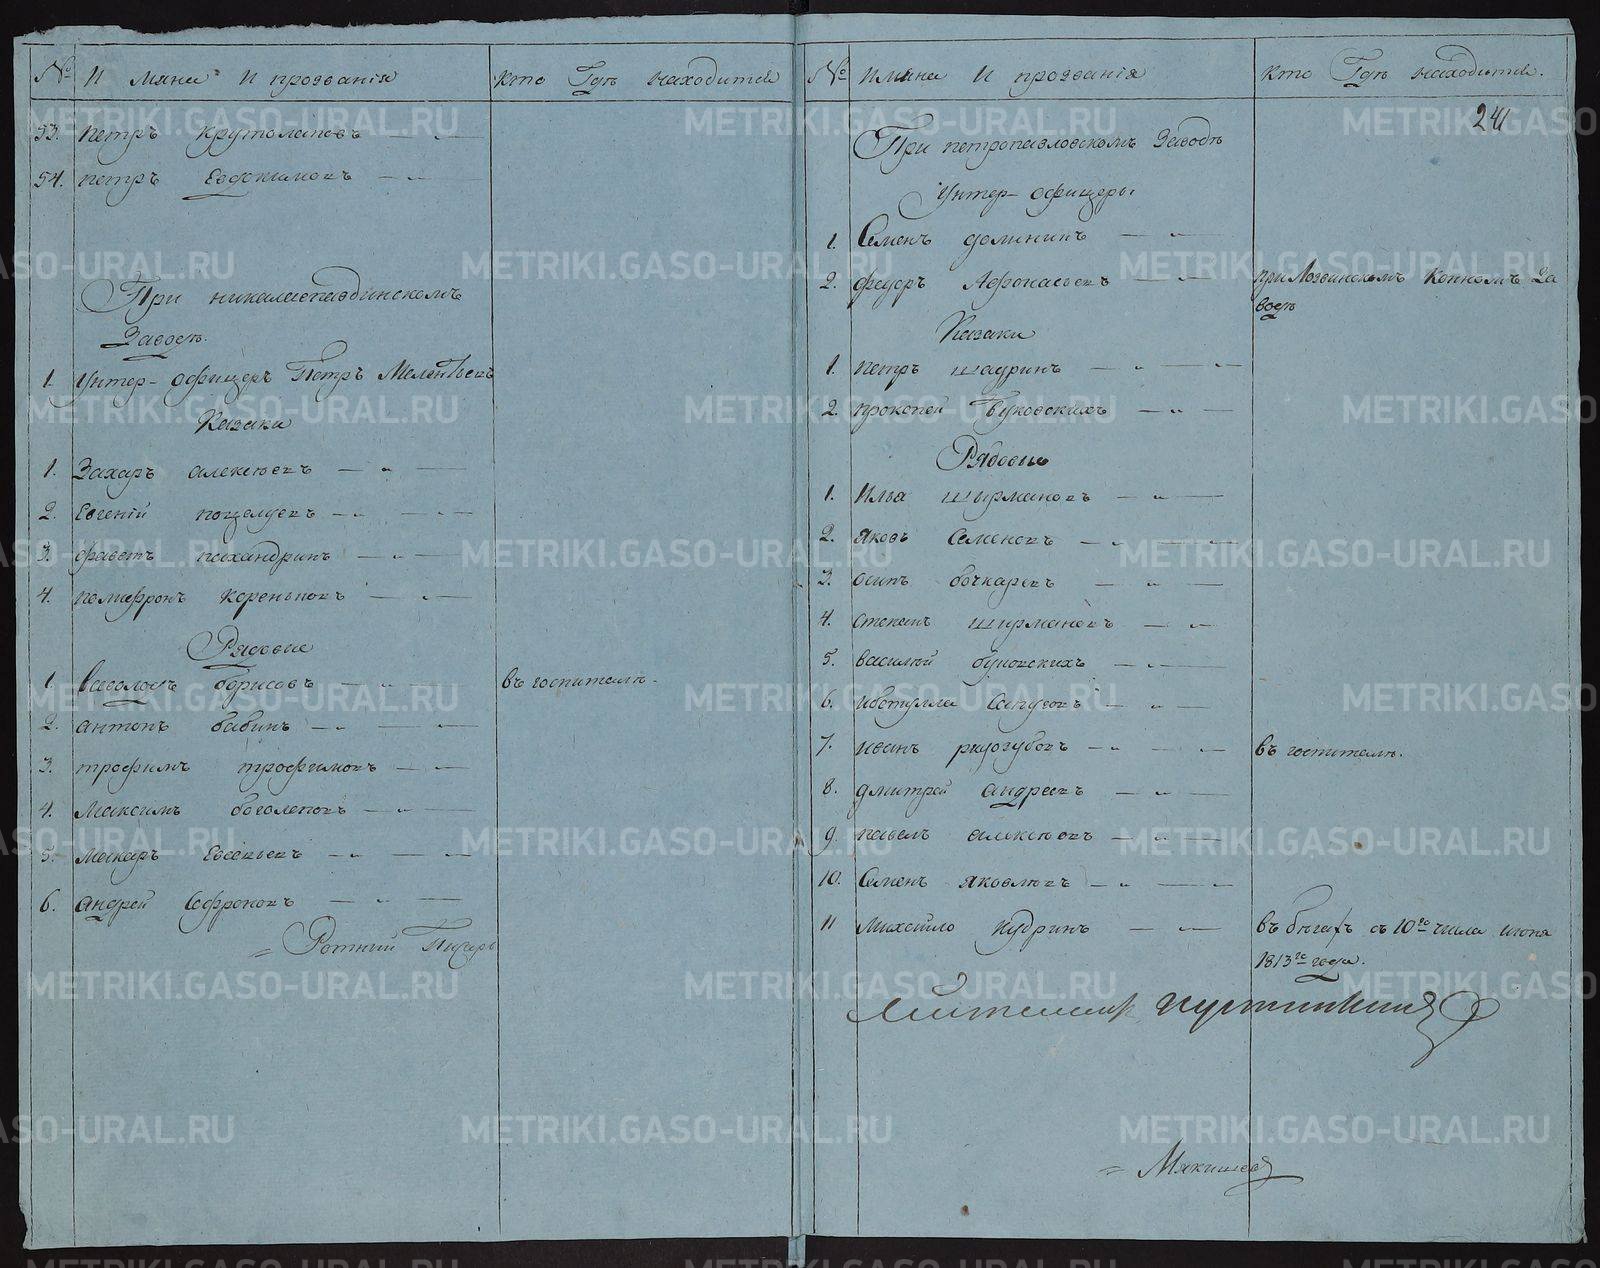 № Имяна И прозвания кто Гдѣ находится
53. петръ крутолаповъ — „ —
54. петръ Евфимовъ — „ —
При николаепавдинскомъ
Заводѣ.
1. унтер-офицеръ Петръ Мелентьевъ
Казаки
1. Захаръ алексѣевъ — „ —
2. Евгений поцелуевъ — „ —
3. — „ —
4. — „ —
Рядовые
1. борисовъ — „ — въ госпиталѣ.
2. антонъ бабинъ — „ —
3. трофимъ трофимовъ — „ —
4. Максимъ боголеповъ — „ —
5. Макаръ Евсевьевъ — „ —
6. андрей Софроновъ — „ —
Ротный Писарь
№ Имяна И прозвания кто Гдѣ находится.
241
При петропавловскомъ Заводѣ
Унтер-офицеры
1. Семенъ долининъ — „ —
2. федоръ Афонасьевъ — „ — при Лозвинскомъ Конномъ За
водѣ
Казаки
1. петръ шадринъ — „ —
2. прокопей Буковскихъ — „ —
Рядовые
1. Илья ширмановъ — „ —
2. яковъ Семеновъ — „ —
3. осипъ бочкаревъ — „ —
4. степанъ ширмановъ — „ —
5. василий буковскихъ — „ —
6. — „ —
7. иванъ — „ — въ госпиталѣ.
8. дмитрей андреевъ — „ —
9. павелъ алексѣевъ — „ —
10. Семенъ яковлевъ — „ —
11 михайло кудринъ — „ — въ бѣгахъ съ 10го числа июня
1813го года.
Мякишев
METRIKI.GASO-URAL.RU